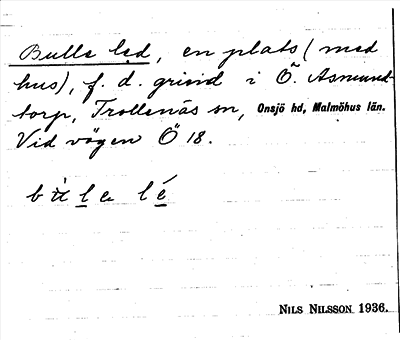 Bulls led, en plats (med
hus), f. d. grind i Ö. Asmund-
torp, Trollenäs sn, Onsjö hd, Malmöhus län.
Vid vägen Ö 18.
NILS NILSSON 1936.